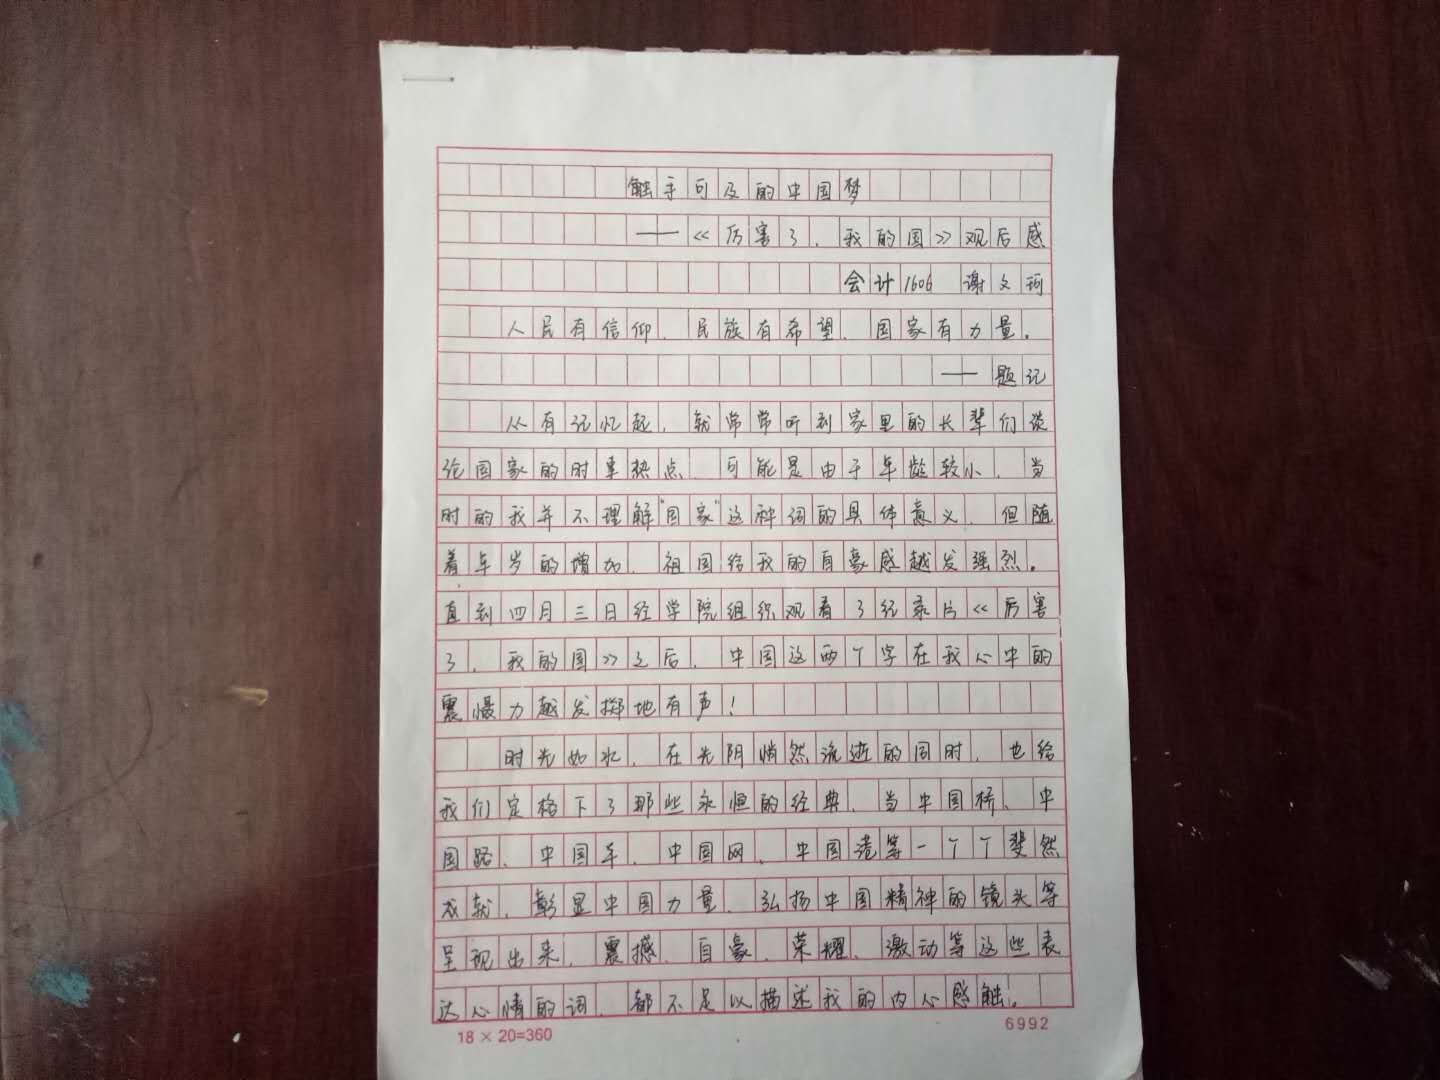 触手可及的中国梦
——《厉害了，我的国》观后感
会计1606 谢文珂
人民有信仰，民族有希望，国家有力量。
——题记
从有记忆起，就常常听到家里的长辈们谈
论国家的时事热点，可能是由于年龄较小，当
时的我并不理解“国家”这种词的具体意义，但随
着年岁的增加，祖国给我的自豪感越发强烈。
直到四月三日经学院组织观看了纪录片《厉害
了，我的国》之后，中国这两个字在我心中的
震慑力越发掷地有声！
时光如水，在光阴悄然流逝的同时，也给
我们定格下了那些永恒的经典，当中国桥、中
国路、中国车、中国网、中国港等一个个斐然
成就，彰显中国力量、弘扬中国精神的镜头等
呈现出来，震撼、自豪、荣耀、激动等这些表
达心情的词，都不足以描述我的内心感触。
18×20=360
6992